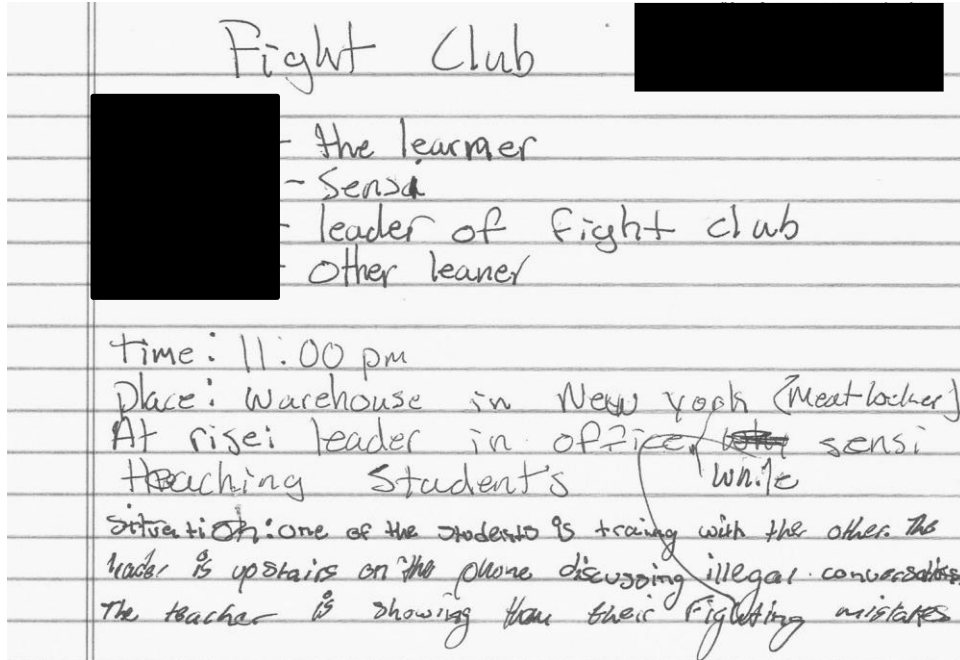 Fight Club
- the learner
- Sensi
- leader of fight club
- Other leaner
Time: 11:00 pm
Place: Warehouse in New York (Meat locker)
At rise: leader in office, while sensi
teaching Students
Situation: one of the students is traing with the other. The
leader is upstairs on the phone discussing illegal conversations.
The teacher is showing them their fighting mistakes